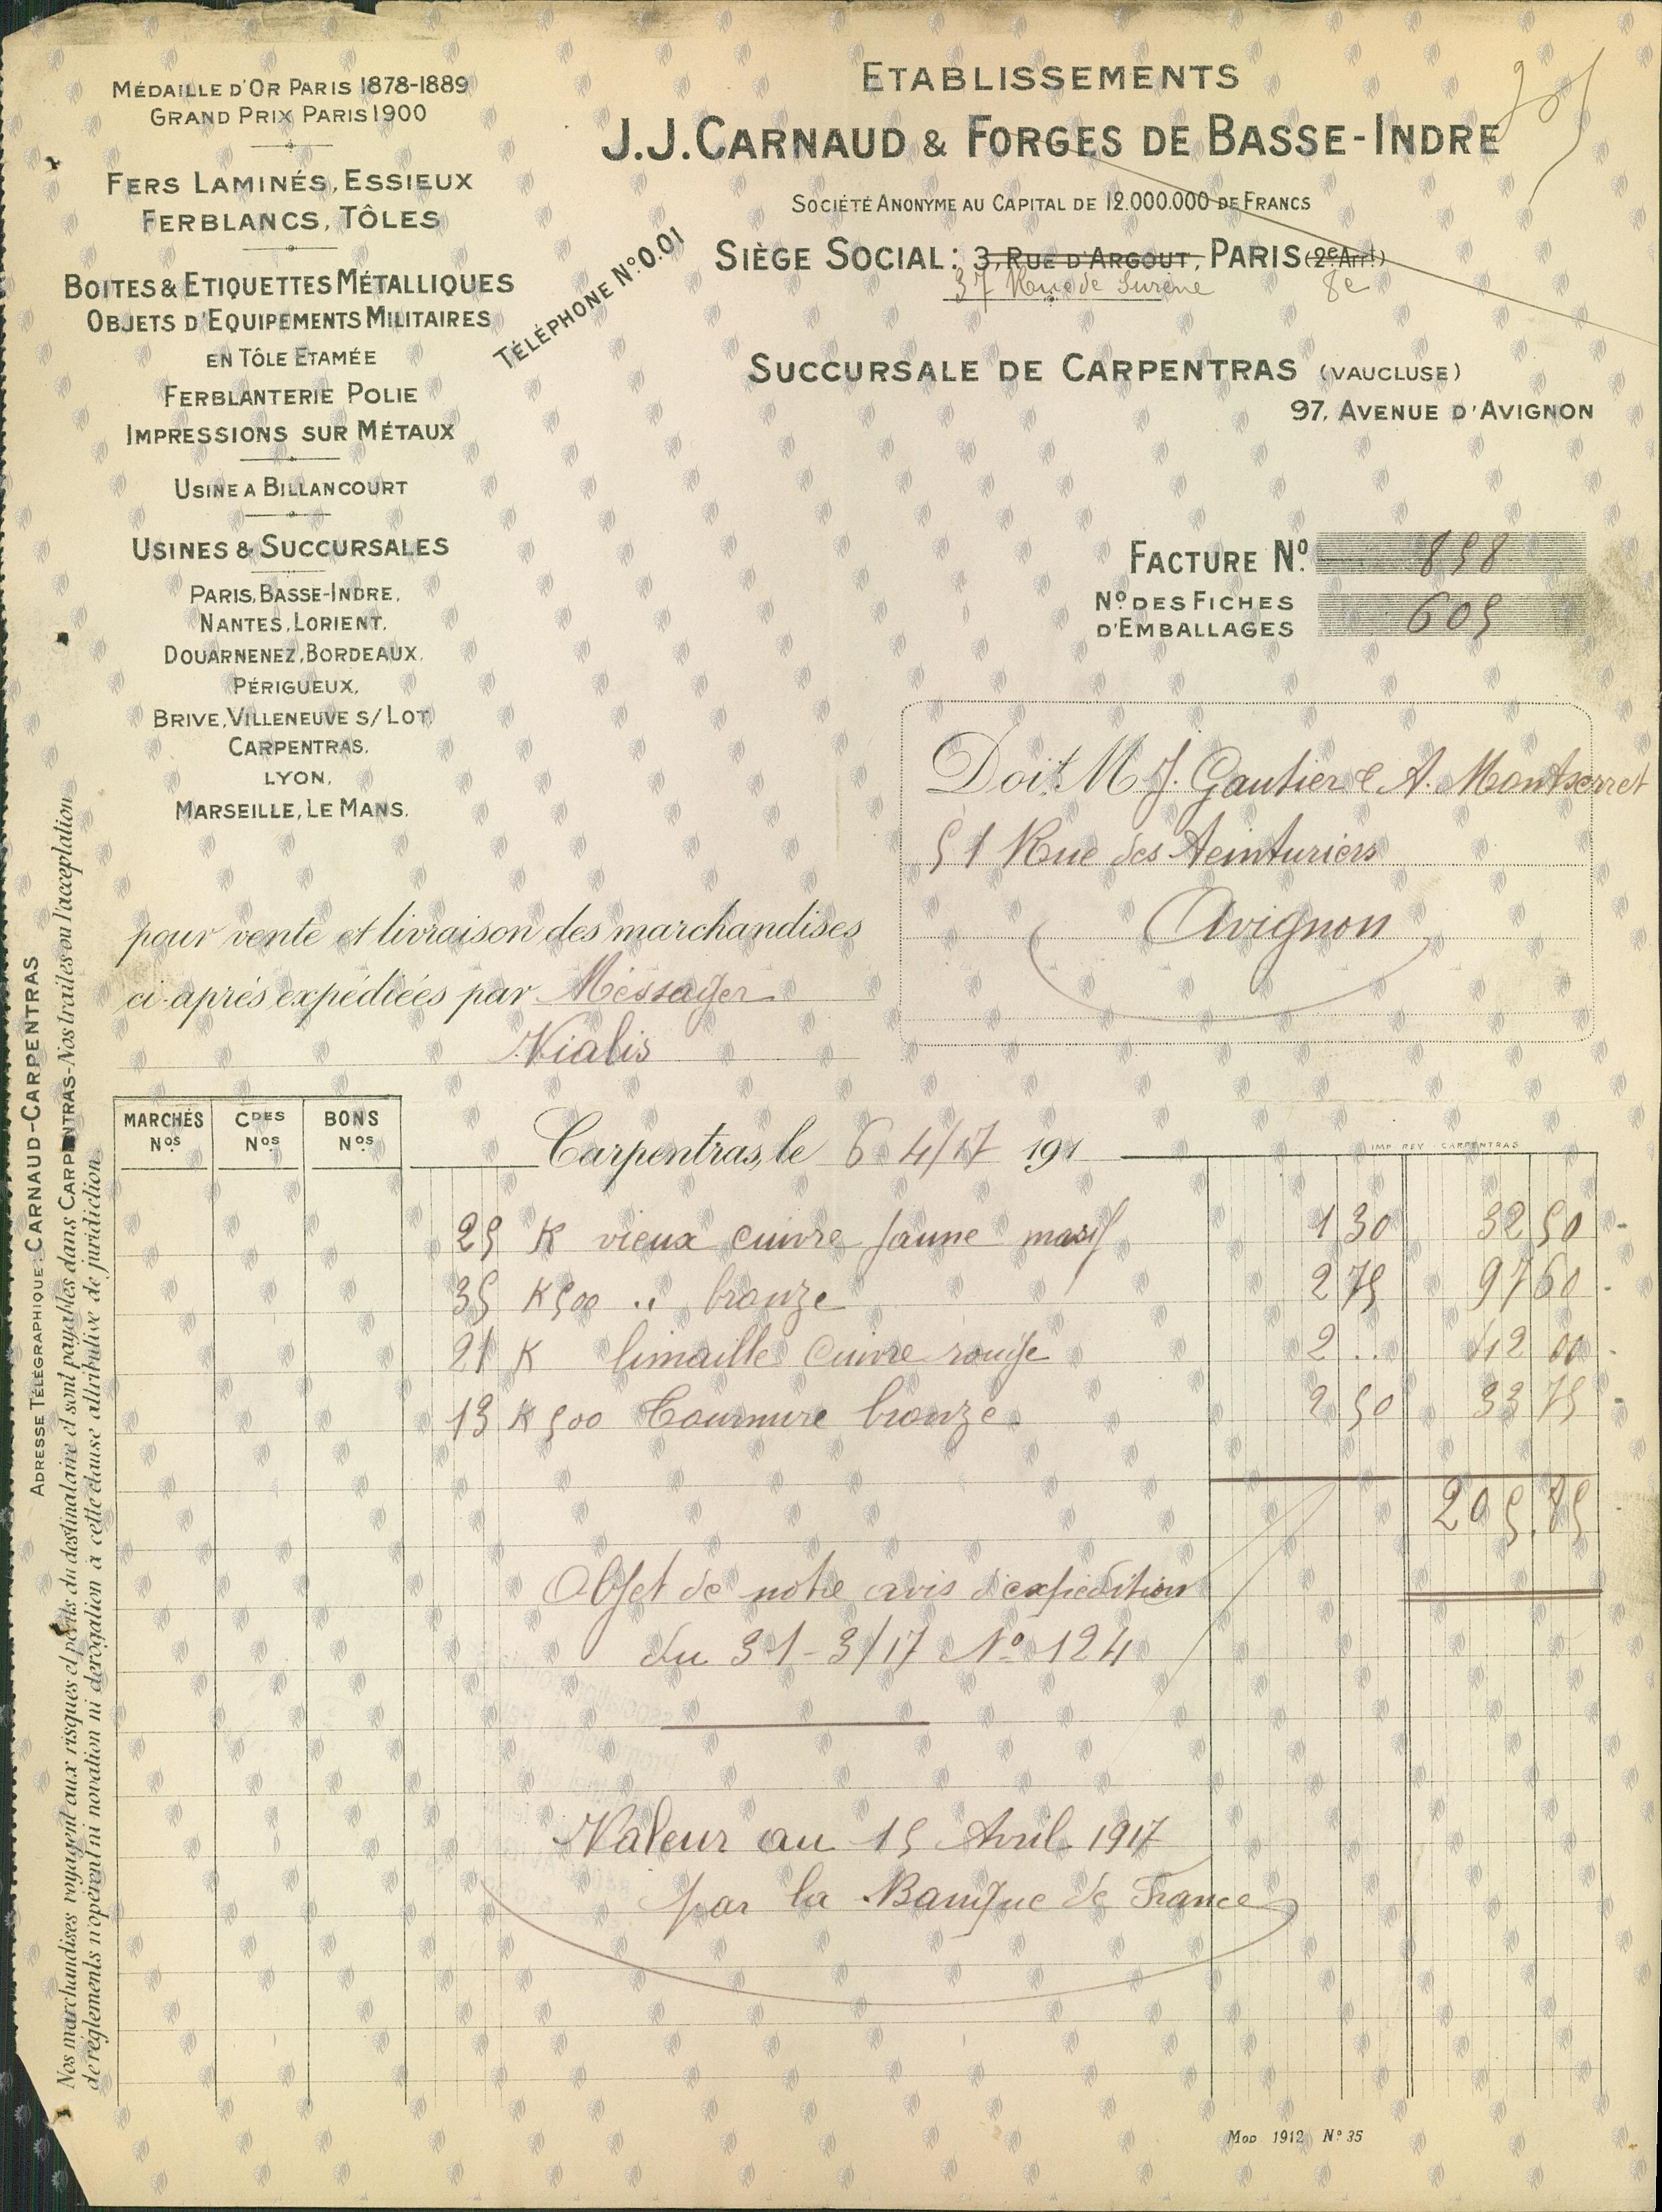 MÉDAILLE D'OR PARIS 1878-1889
GRAND PRIX PARIS 1900
FERS LAMINÉS, ESSIEUX
FERBLANCS, TÔLES
BOITES & ETIQUETTES MÉTALLIQUES
OBJETS D'EQUIPEMENTS MILITAIRES
EN TÔLE ETAMÉE
FERBLANTERIE POLIE
IMPRESSIONS SUR MÉTAUX
USINE A BILLANCOURT
USINES & SUCCURSALES
PARIS, BASSE-INDRE,
NANTES, LORIENT,
DOUARNENEZ, BORDEAUX,
PÉRIGUEUX,
BRIVE, VILLENEUVE S/LOT,
CARPENTRAS,
LYON,
MARSEILLE, LE MANS.
TÉLÉPHONE N° 0.01
ETABLISSEMENTS
J.J. CARNAUD & FORGES DE BASSE-INDRE
SOCIÉTÉ ANONYME AU CAPITAL DE 12.000.000 DE FRANCS
SIÈGE SOCIAL: 3, RUE D'ARGOUT, PARIS (2e Arrt)
37 Rue de Surène 8e
SUCCURSALE DE CARPENTRAS (VAUCLUSE)
97, AVENUE D'AVIGNON
FACTURE N° 858
N° DES FICHES
D'EMBALLAGES 605
Doit M J. Gautier & A. Montserret
51 Rue des Teinturiers
Avignon
pour vente et livraison des marchandises
ci-après expédiées par Méssager
Vialis
MARCHÉS Nos
CDES Nos
BONS Nos
Carpentras, le 6 4/17 191
IMP REY CARPENTRAS
25 K vieux cuivre jaune masif 1 30 32 50
35 K500 " bronze 2 75 97 60
21 K limaille cuivre rouge 2 .. 42 00
13 K500 Tournure bronze 2 50 33 75
205.85
Objet de notre avis d'expédition
du 31-3/17 N° 124
Valeur au 15 Avril 1917
par la Banque de France
MOD 1912 N° 35
ADRESSE TÉLÉGRAPHIQUE: CARNAUD-CARPENTRAS
Nos marchandises voyagent aux risques et périls du destinataire et sont payables dans CARPENTRAS-Nos traites ou l'acceptation
de réglements n'opèrent ni novation ni dérogation à cette clause attributive de juridiction.